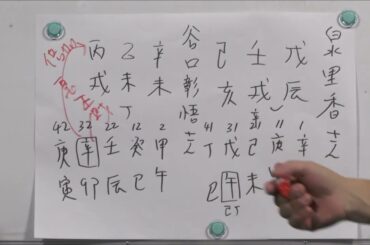 泉里香
戊辰
壬戌
己亥
辛
41 31 21 11 1
丁 戊 己 庚 辛
巳 午 未
谷口彰悟
辛未
乙未
丙戌
丁
42 32 22 12 2
庚 辛 壬 癸 甲
寅 卯 辰 巳 午